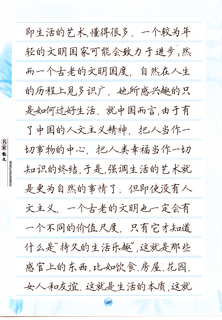 即生活的艺术,懂得很多。一个较为年
轻的文明国家可能会致力于进步;然
而一个古老的文明国度,自然在人生
的历程上见多识广,她所感兴趣的只
是如何过好生活。就中国而言,由于有
了中国的人文主义精神,把人当作一
切事物的中心,把人类幸福当作一切
知识的终结,于是,强调生活的艺术就
是更为自然的事情了。但即使没有人
文主义,一个古老的文明也一定会有
一个不同的价值尺度,只有它才知道
什么是"持久的生活乐趣",这就是那些
感官上的东西,比如饮食、房屋、花园、
女人和友谊。这就是生活的本质,这就